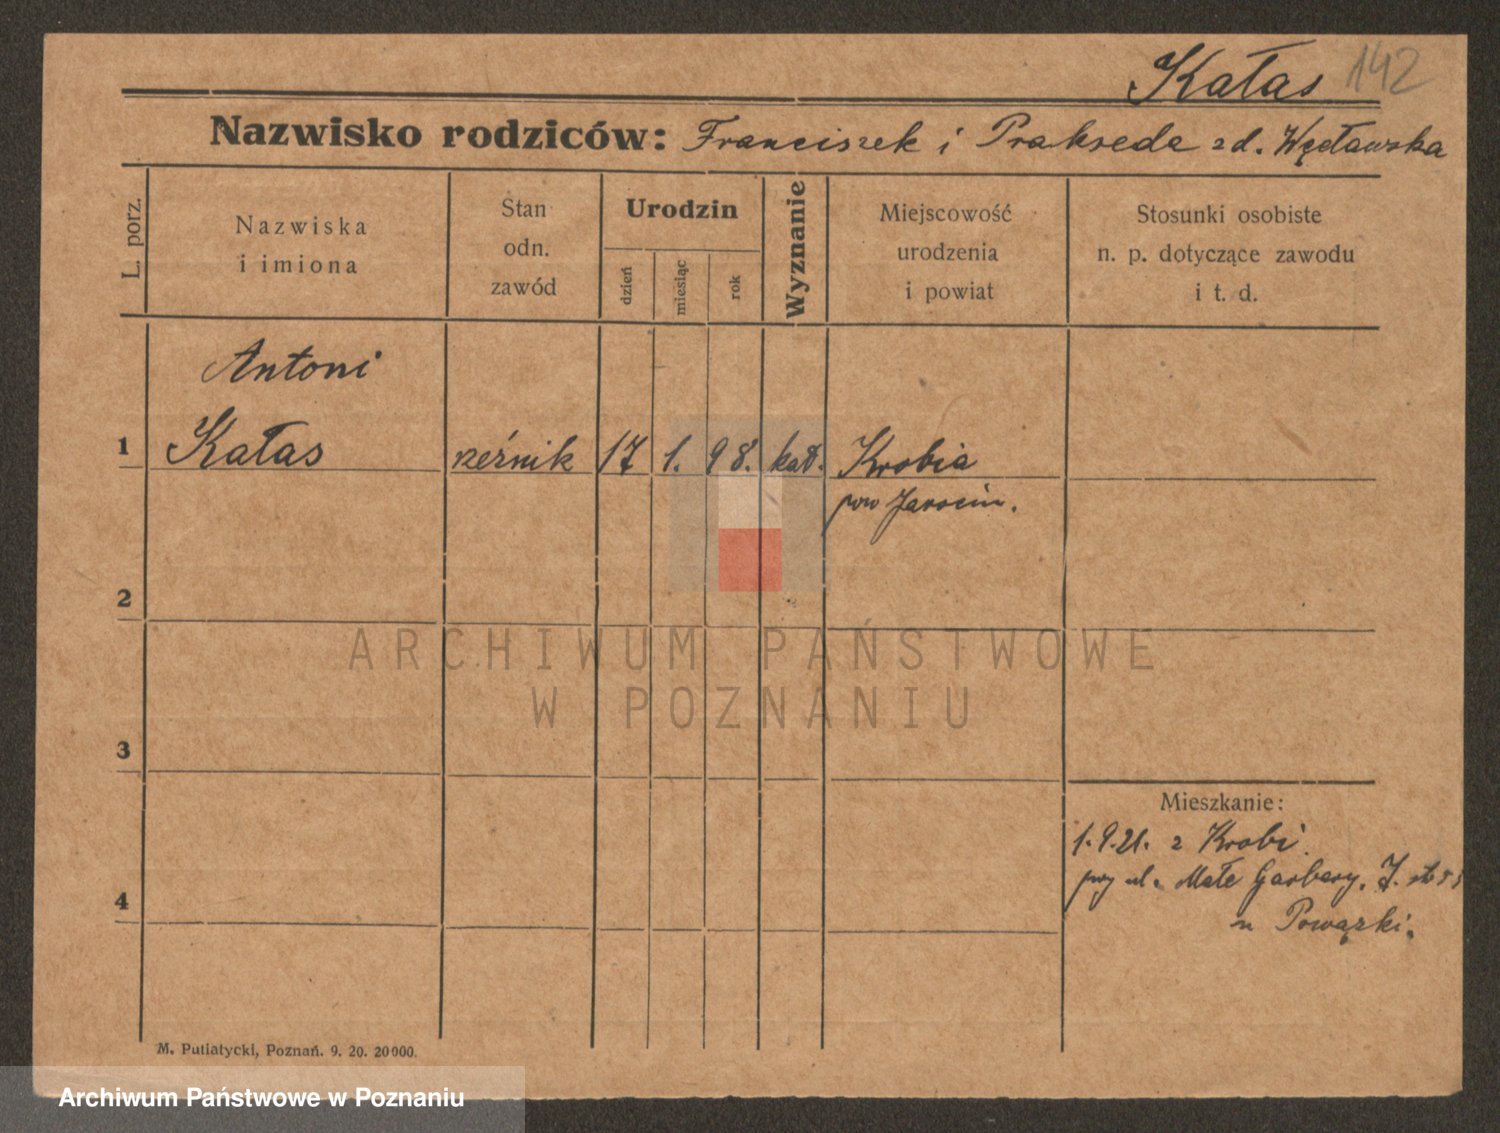 Kałas 142
Nazwisko rodziców: Franciszek i Prakseda zd. Węcławska
L. porz.
Nazwiska
i imiona
Stan
odn.
zawód
Urodzin
dzień
miesiąc
rok
Wyznanie
Miejscowość
urodzenia
i powiat
Stosunki osobiste
n. p. dotyczące zawodu
i t. d.
Antoni
1 Kałas rzeźnik 17 1. 98. kat. Krobia
pow Jarocin.
2
ARCHIWUM PAŃSTWOWE
W POZNANIU
3
Mieszkanie:
1.9.21. z Krobi.
przy ul. Małe Garbary, 7.
4
u Powązki.
M. Putiatycki, Poznań. 9. 20. 20000.
Archiwum Państwowe w Poznaniu